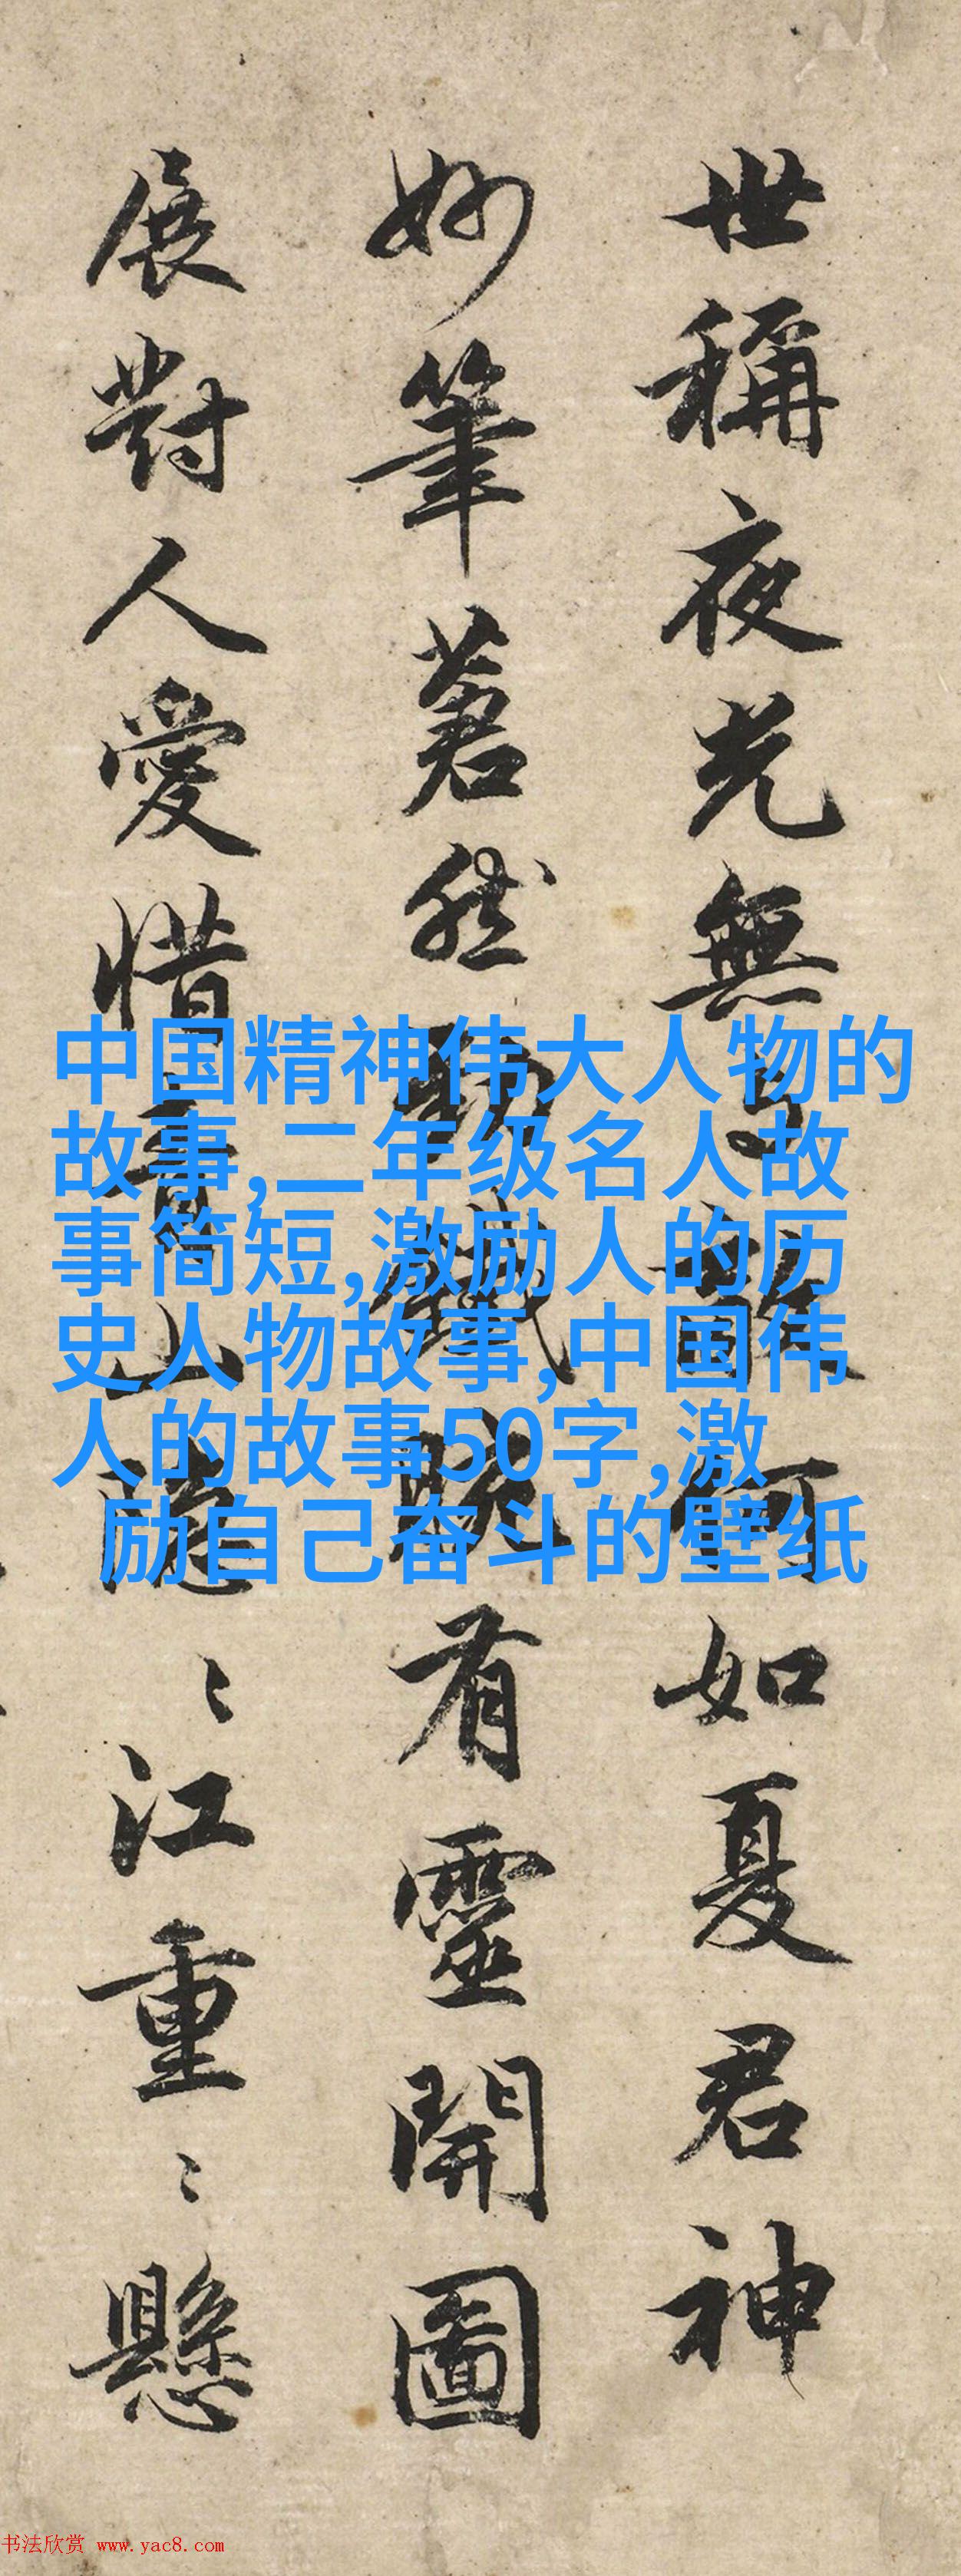 世稱夜光無与敵何如夏君神
妙筆然鐵腕有靈開圖
展對人愛惜青山隱〻江重〻懸
中国精神伟大人物的
故事,二年级名人故
事简短,激励人的历
史人物故事,中国伟
人的故事50字,激
励自己奋斗的壁纸
书法欣赏 www.yac8.com